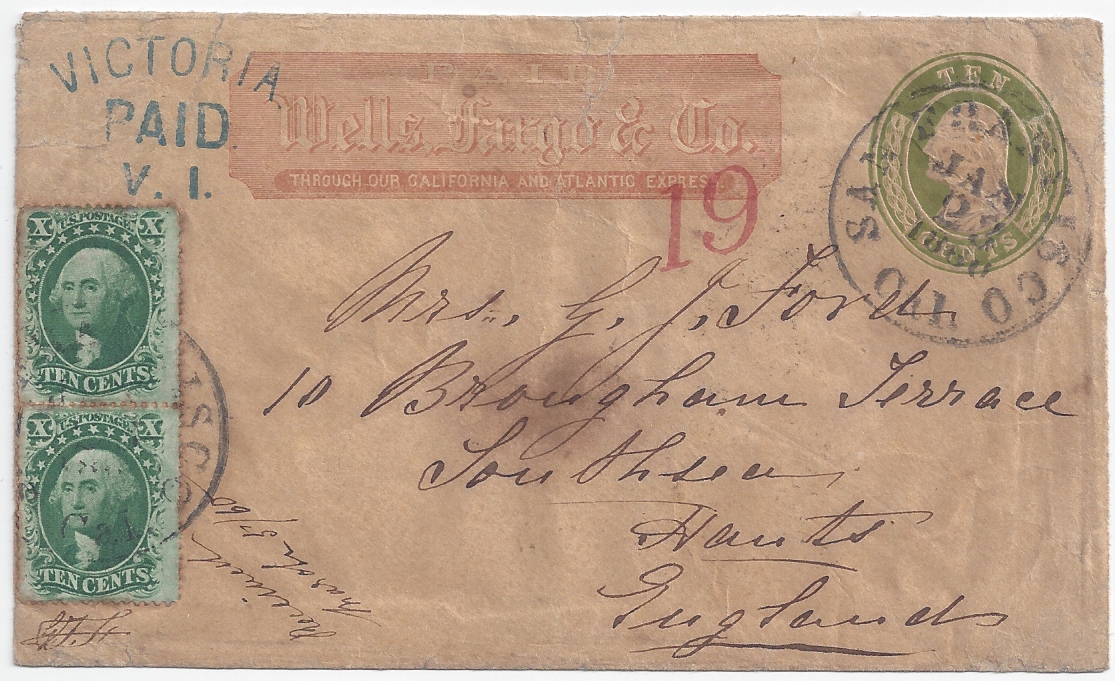 VICTORIA
PAID
V. I.
PAID
Wells, Fargo & Co.
THROUGH OUR CALIFORNIA AND ATLANTIC EXPRESS.
TEN
CENTS
SAN FRANCISCO
JAN
19
X U.S. POSTAGE X
TEN CENTS
X U.S. POSTAGE X
TEN CENTS
Cal
Mrs. G. J. Ford
10 Brougham Terrace
Southsea
Hants
England
Received
March 5/60